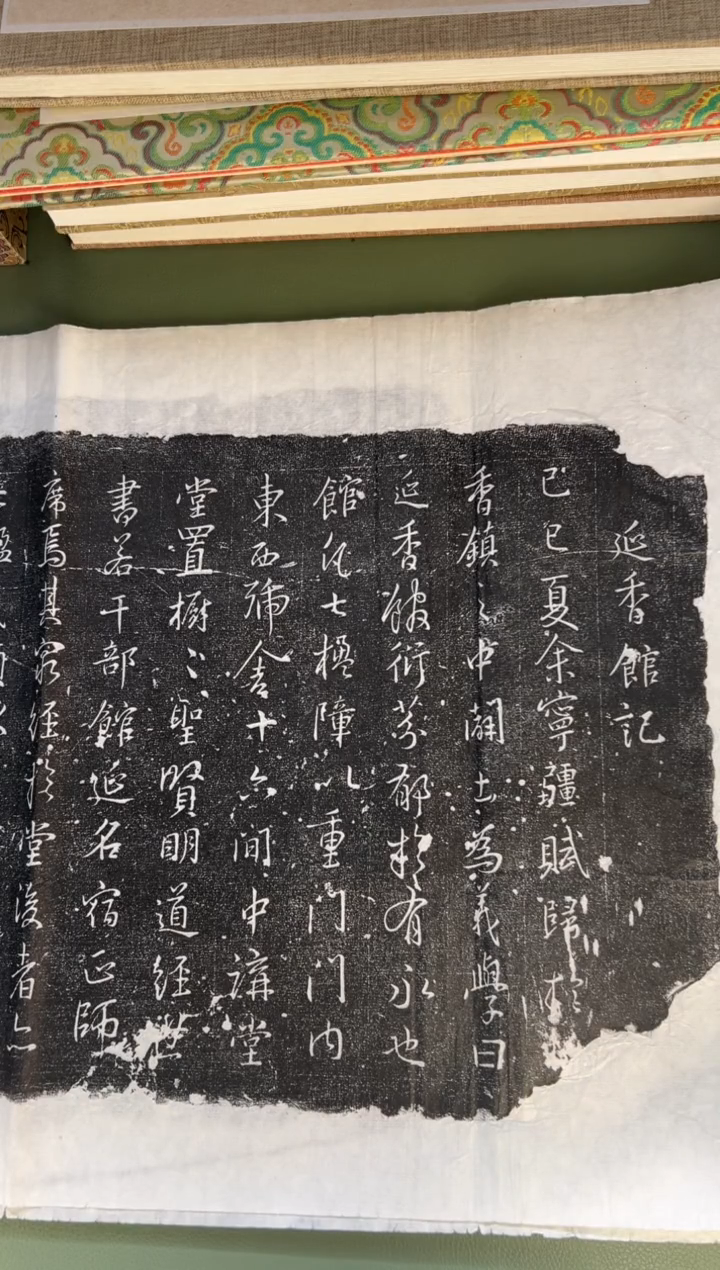 延香館記
己巳夏余寧疆賦歸
香鎮之中闢土為義學曰
延香館衍芬郁於有永也
館凡七楹障以重門門内
東西號舍十六間中講堂
堂置櫥櫥聖賢明道經世
書若干部館延名宿正師
席焉其窮經於堂後者亦